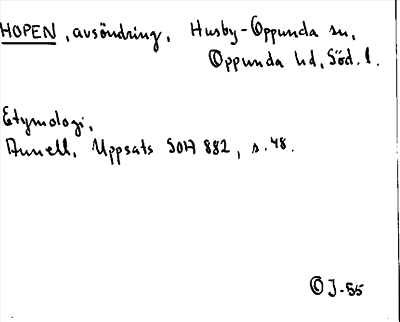 HOPEN, avsöndring, Husby-Oppunda sn,
Oppunda hd, Söd. l.
Etymologi,
Annell, Uppsats SOH 882, s. 48.
© J-55